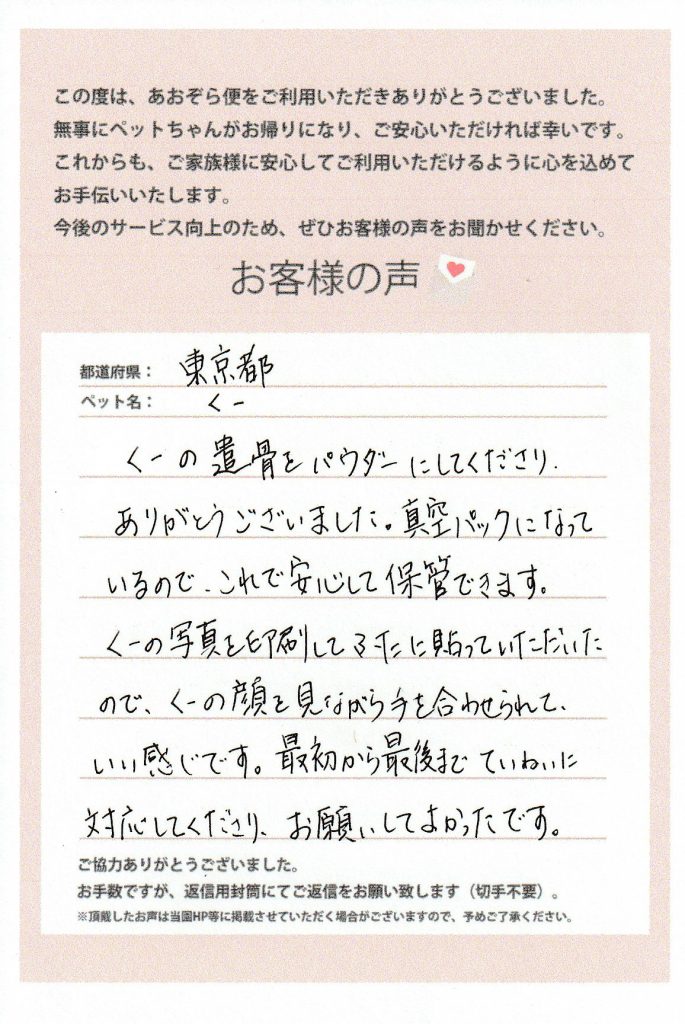 この度は、あおぞら便をご利用いただきありがとうございました。
無事にペットちゃんがお帰りになり、ご安心いただければ幸いです。
これからも、ご家族様に安心してご利用いただけるように心を込めて
お手伝いいたします。
今後のサービス向上のため、ぜひお客様の声をお聞かせください。
お客様の声
都道府県： 東京都
ペット名： くー
くーの遺骨をパウダーにしてくださり、
ありがとうございました。真空パックになって
いるので、これで安心して保管できます。
くーの写真を印刷してふたに貼っていただいた
ので、くーの顔を見ながら手を合わせられて、
いい感じです。最初から最後までていねいに
対応してくださり、お願いしてよかったです。
ご協力ありがとうございました。
お手数ですが、返信用封筒にてご返信をお願い致します（切手不要）。
※頂戴したお声は当園HP等に掲載させていただく場合がございますので、予めご了承ください。